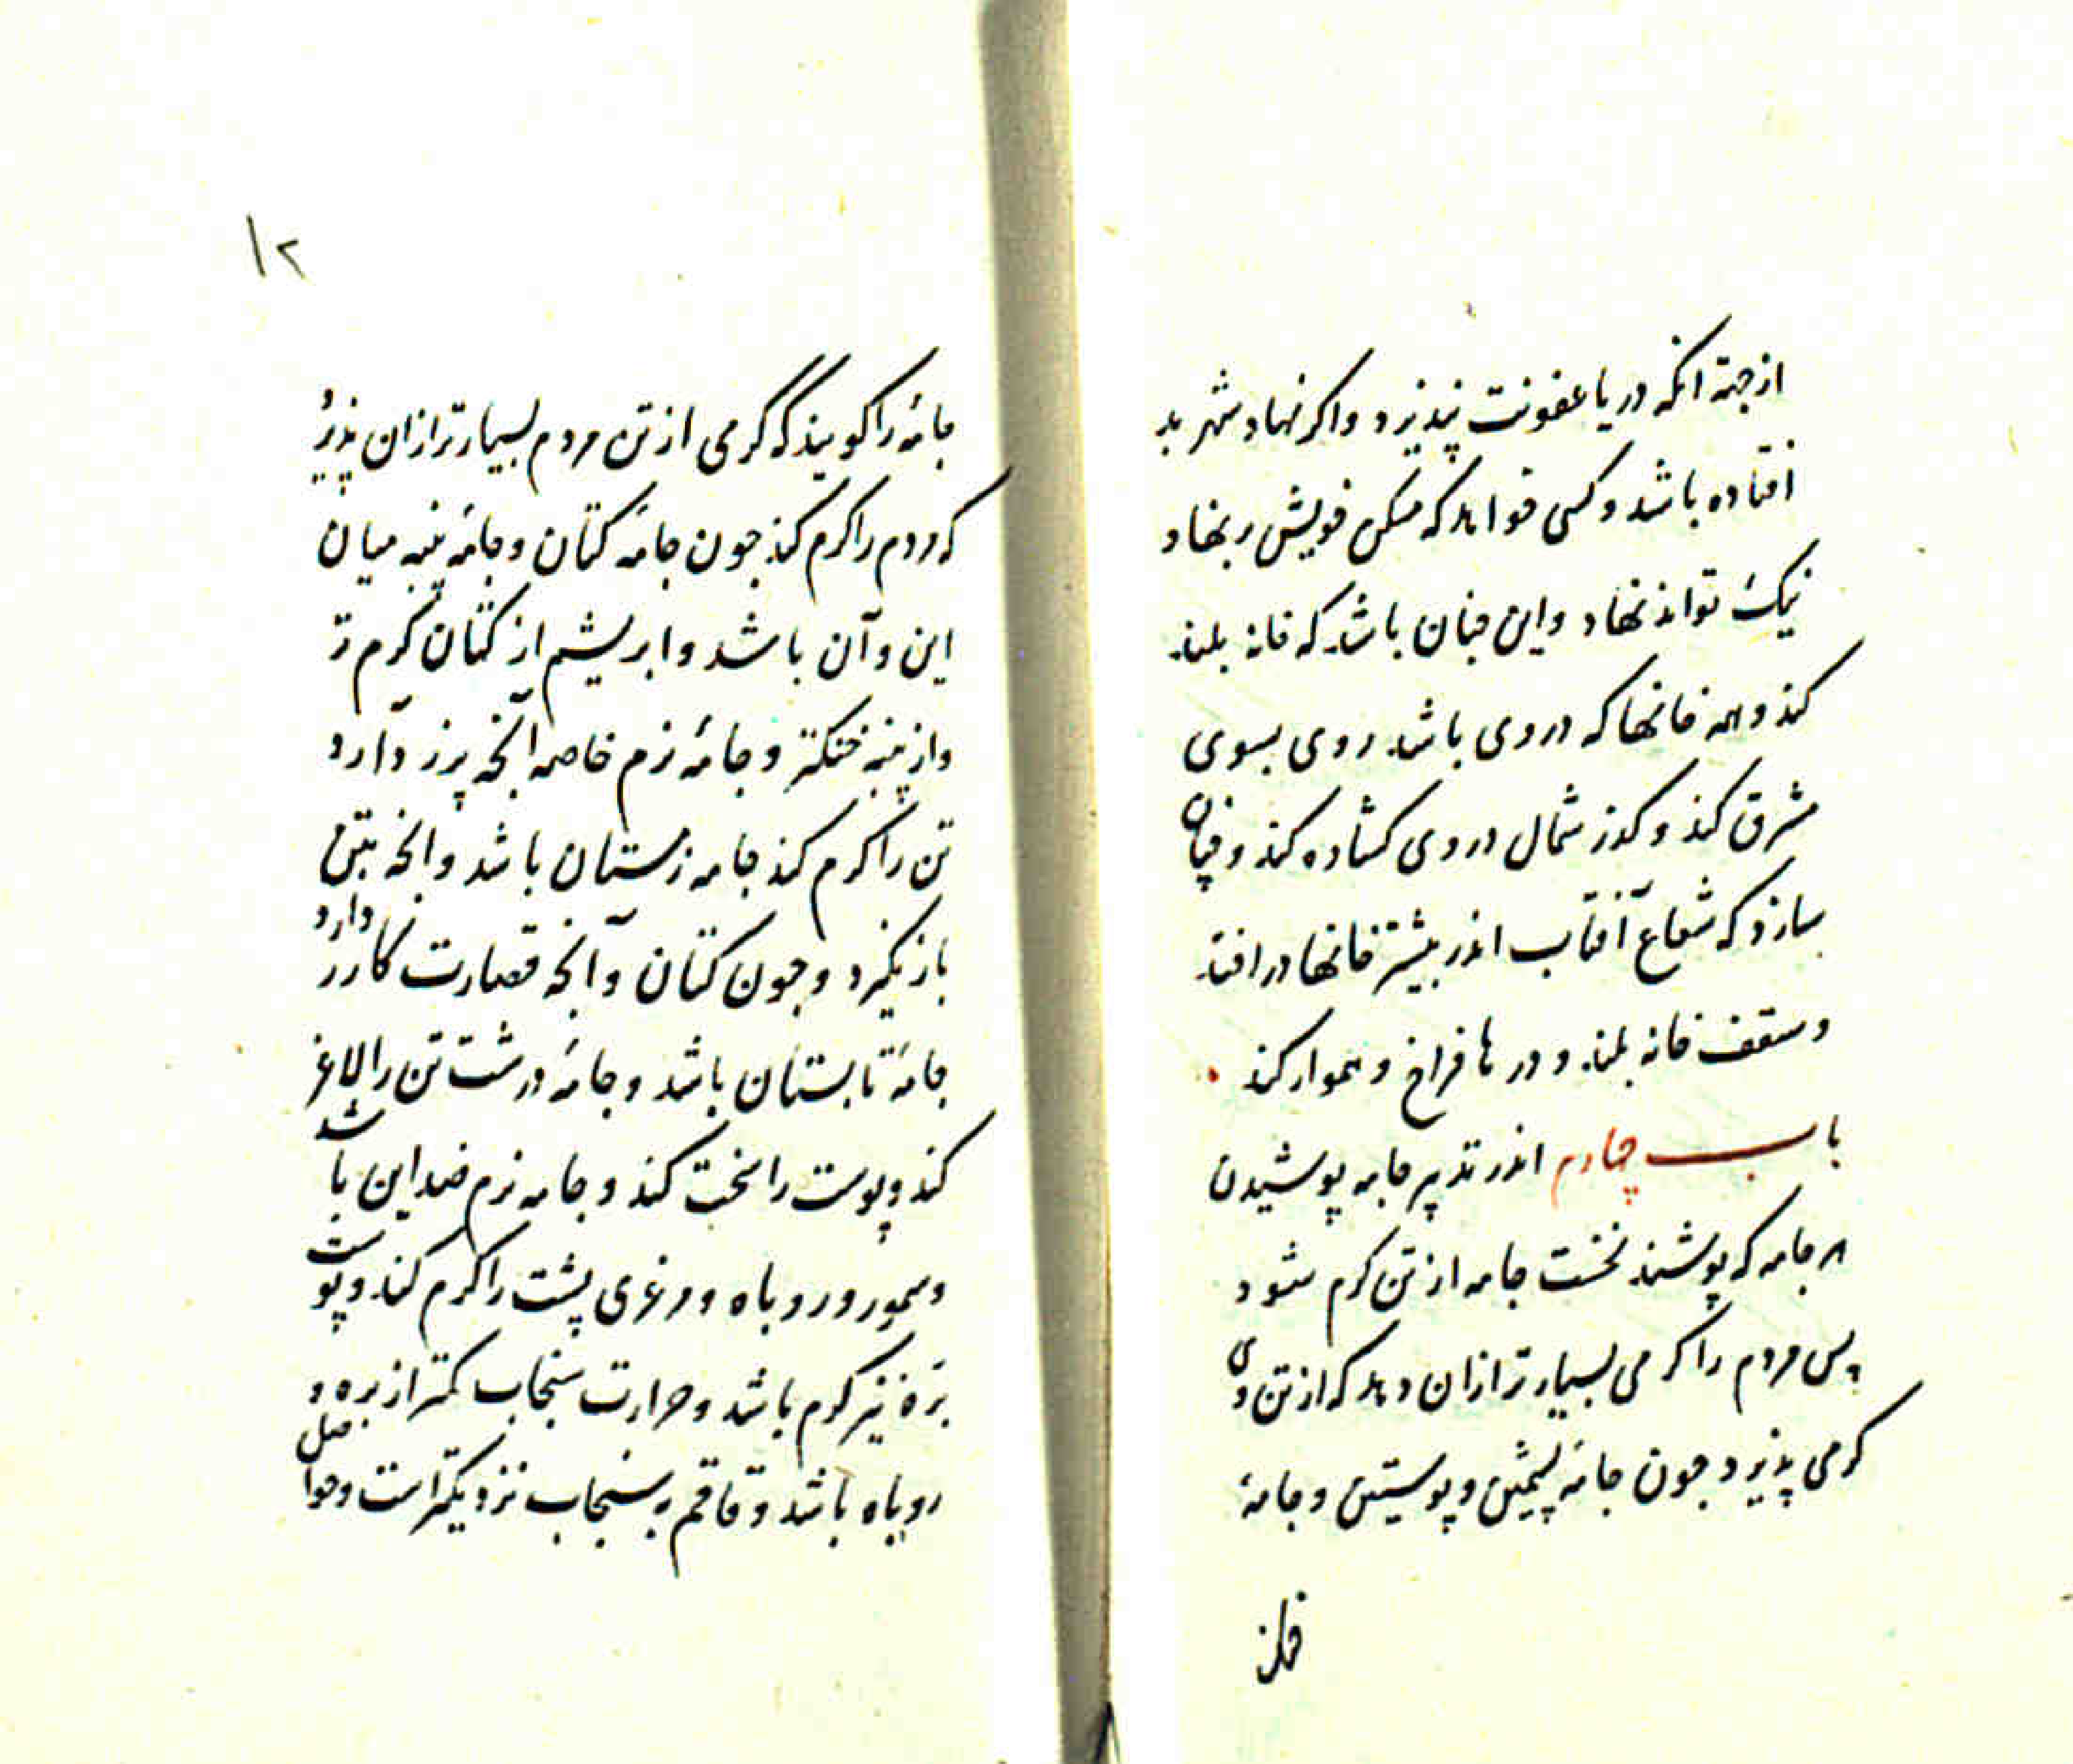 از جهة انکه دریا عفونت نپذیرد و اکر نهاد شهر بد
افتاده باشد و کسی خواهد که مسکن خویش بر نهاد
نیک تواند نهاد و این چنان باشد که خانه بلند
کند و همه خانها که در وی باشد روی بسوی
مشرق کند و کذر شمال در وی کشاده کند و چنان
سازد که شعاع آفتاب اندر بیشتر خانها در افتد
و سقف خانه بلند و در ها فراخ و هموار کند
باب چهارم اندر تدبیر جامه پوشیدن
هر جامه که پوشند نخست جامه از تن کرم شود
پس مردم را کرمی بسیار تر ازان دهد که از تن وی
کرمی پذیرد جون جامۀ پشمین و پوستین و جامۀ
۱۲
جامۀ را کویند که گرمی از تن مردم بسیار تر ازان پذیرد
که مردم را کرم کند جون جامۀ کتان و جامۀ پنبه میان
این و آن باشد و ابریشم از کتان کرم تر
و از پنبه خنکتر و جامۀ نرم خاصه آنجه پرز دارد
تن را کرم کند جامه زمستان باشد و انجه بتن
باز نکیرد و جون کتان و آنجه قصارت کارد دارد
جامۀ تابستان باشد و جامۀ درشت تن را لاغر
کند و پوست را سخت کند و جامه نرم ضد این باشد
و سمور و روباه و مرغزی پشت را کرم کند و پوست
بره نیز کرم باشد و حرارت سنجاب کمتر از بره و
روباه باشد و قاقم به سنجاب نزدیکتر است و حواصل